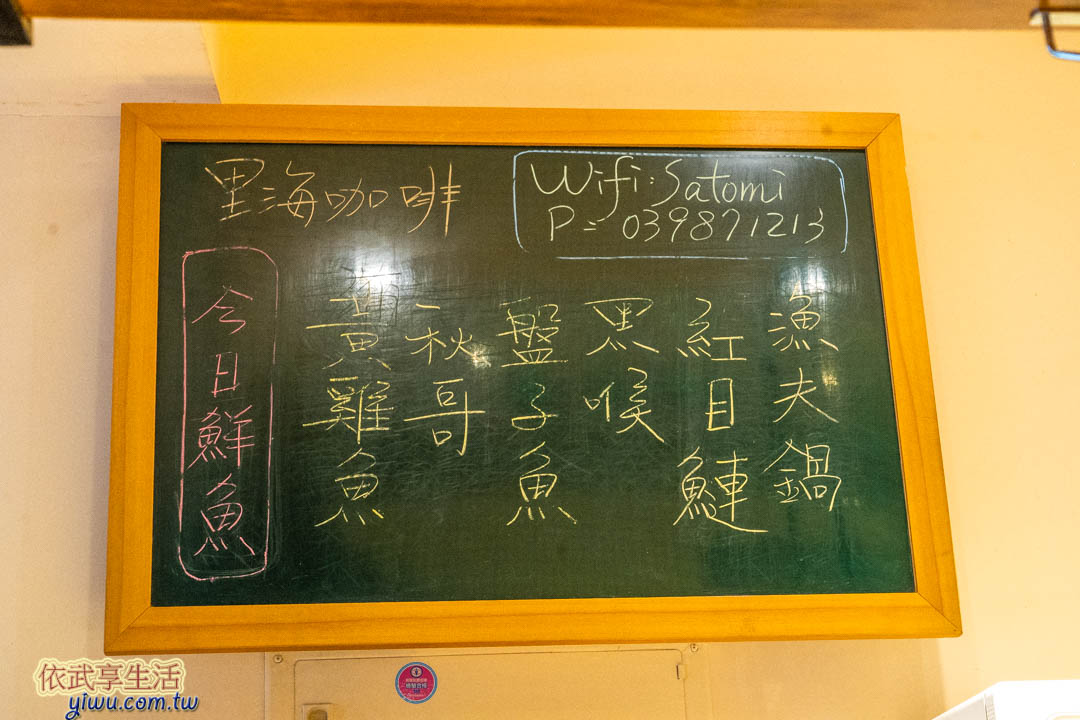 里海咖啡
Wifi: Satomi
P= 039871213
今日鮮魚
漁夫鍋
紅目鰱
黑喉
盤子魚
秋哥
黃雞魚
依武享生活
yiwu.com.tw